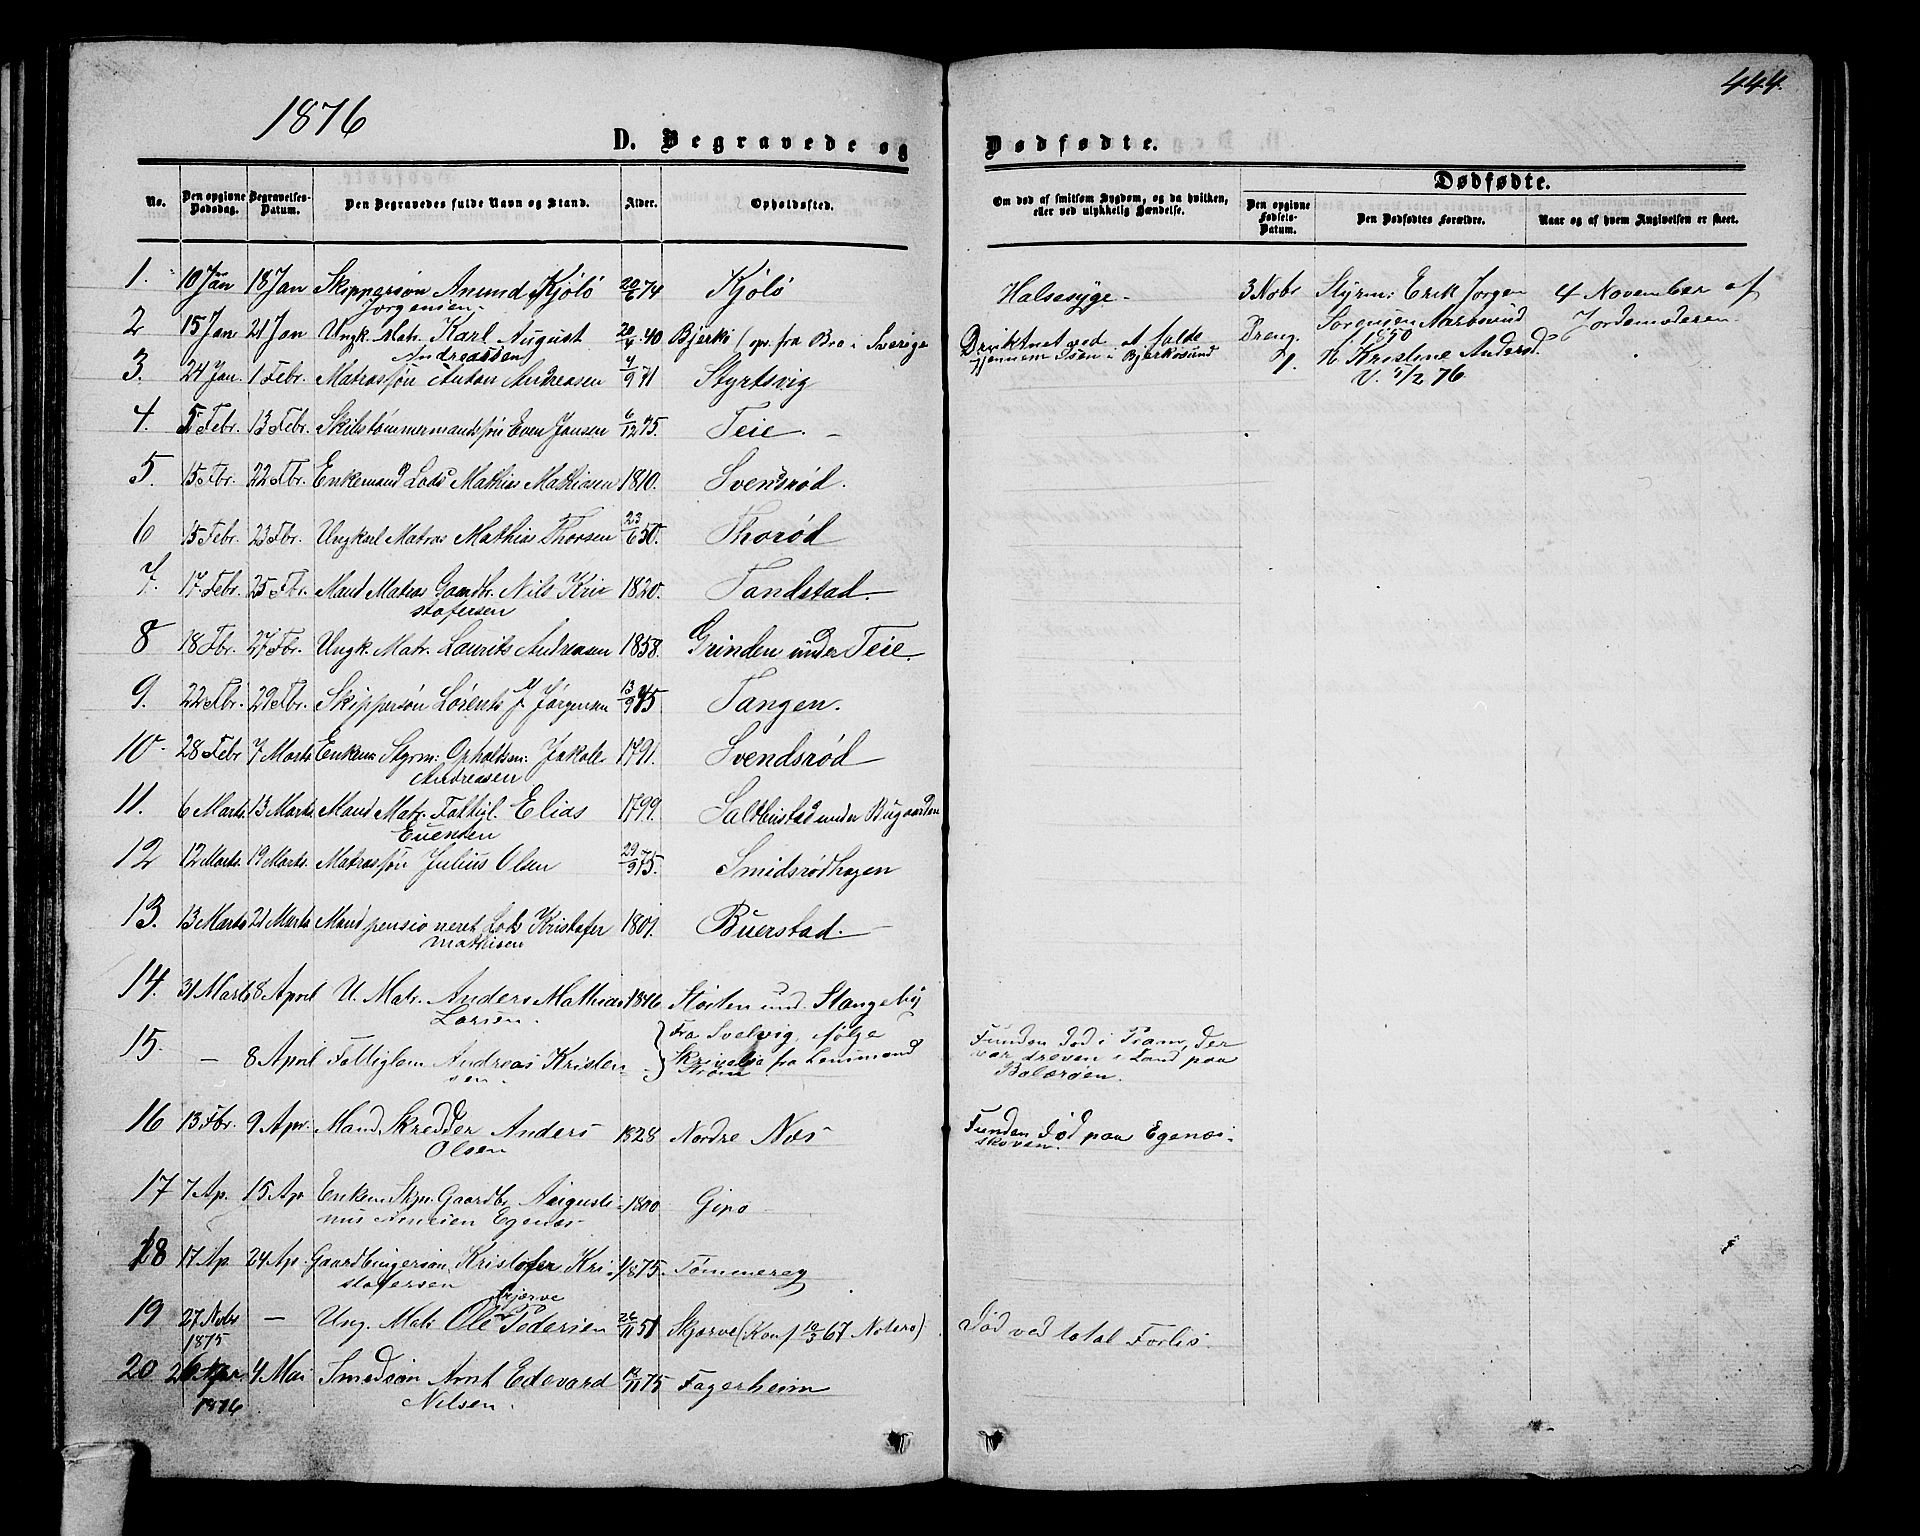 1876
444.
D. Begravede og Dødfødte.
No.
Den opgivne Dødsdag.
Begravelses-Datum.
Den Begravedes fulde Navn og Stand.
Alder.
Opholdssted.
Om død af smitsom Sygdom, og da hvilken, eller ved ulykkelig Hændelse.
Dødfødte.
Den opgivne Fødsels-Datum.
Den Dødfødtes Forældre.
Naar og af hvem Angivelsen er skeet.
1. 10 Jan 18 Jan Skippersøn Anund Kjølø 20/6 74 Kjølø Halssyge.
Jorgensen.
3 Nobr Styrm: Erik Jorgen 4 November af
Sorensen Jordemoderen
Dreng 1850
H. Kristine Andersd.
V. 76.
2 15 Jan 21 Jan Ungk. Matr. Karl August 40 Bjerkø (opr. fra Bro i Sverige Druknet ved at falde
Andreassen gjennem Isen i Bjerkøsund
3. 24 Jan. 1 Febr. Matrossøn Anton Andreasen 4/9 71 Styrtsvig
4. 5 Febr. 13 Febr. Skibstømmermandssøn Even Jansen 6/12 75. Teie.
5. 15 Fbr. 22 Fbr. Enkemand Lods Mathias Mathiasen 1810. Svendsrød.
6 15 Febr. 23 Fbr. Ungkarl Matros Mathias Thorsen 23/6 50. Thorød
7. 17 Febr. 25 Fbr. Mand Matros Gaardbr. Nils Kri
stofersen 1820. Tandstad.
8 18 Fbr. 27 Fbr. Ungk. Matr. Laurits Andreasen 1858. Grinden under Teie.
9. 22 Fbr. 29 Fbr. Skippersøn Lorents J. Jørgensen 13/9 75 Tangen.
10. 28 Febr 7 Marts Enkem. Styrm: Opholdsm: Jakob
Andreasen 1791. Svendsrød
11. 6 Marts. 13 Marts Mand Matr. Fattigl. Elias
Evensen 1799. Saltbustad under Bugaarden
12 12 Marts. 19 Marts. Matrossøn Julius Olsen 29/9 75. Smidsrødhagen
13. 13 Marts 21 Marts Mand pensioneret Lods Kristofer
Mathisen 1801. Buerstad.
14. 31 Marts 8 April U. Matr. Anders Mathias
Larsen. 1846 Storten und. Stangeby
15. — 8 April Fattiglem Andreas Kristen-
sen. Fra Svelvig, ifølge
fra Lensmand
Strøm
Funden Død i Pram, der
var dreven i Land paa
Bolærøen.
16 13 Fbr. 9 Apr. Mand Skrædder Anders
Olsen 1828 Nordre Næs Funden Død paa Egenæs-
skoven.
17 7 Ap. 15 Ap. Enkem Skp. Gaardbr Augusti-
nus Egenæs 1800 Gipø
18 17 Ap. 24 Ap. Gaardbrugersøn Kristofer Kri-
stofersen 1/8 75. Tømmeraa
19 27 Nobr
1875 — Ung. Matr Ole Pedersen 26/11 51 Skjerve (Konf. 10/3 67 Nøterø) Død ved total Forlis.
Skjerve
20 26 Apr.
1876 4 Mai Smedsøn Arnt Edevard
Nilsen. 12/11 75 Fagerheim